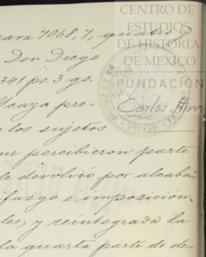 para 7068,7, quatro y
Don Diego
341 ps. 3 gs.
Alcaza pre-
los sujetos
que percibieron parte
le devolvio por alcaba
y imposicion
les, y reintegrada la
la quarta parte de de-
CENTRO DE
ESTUDIOS
DE HISTORIA
DE MEXICO
FUNDACIÓN
Carlos Slim